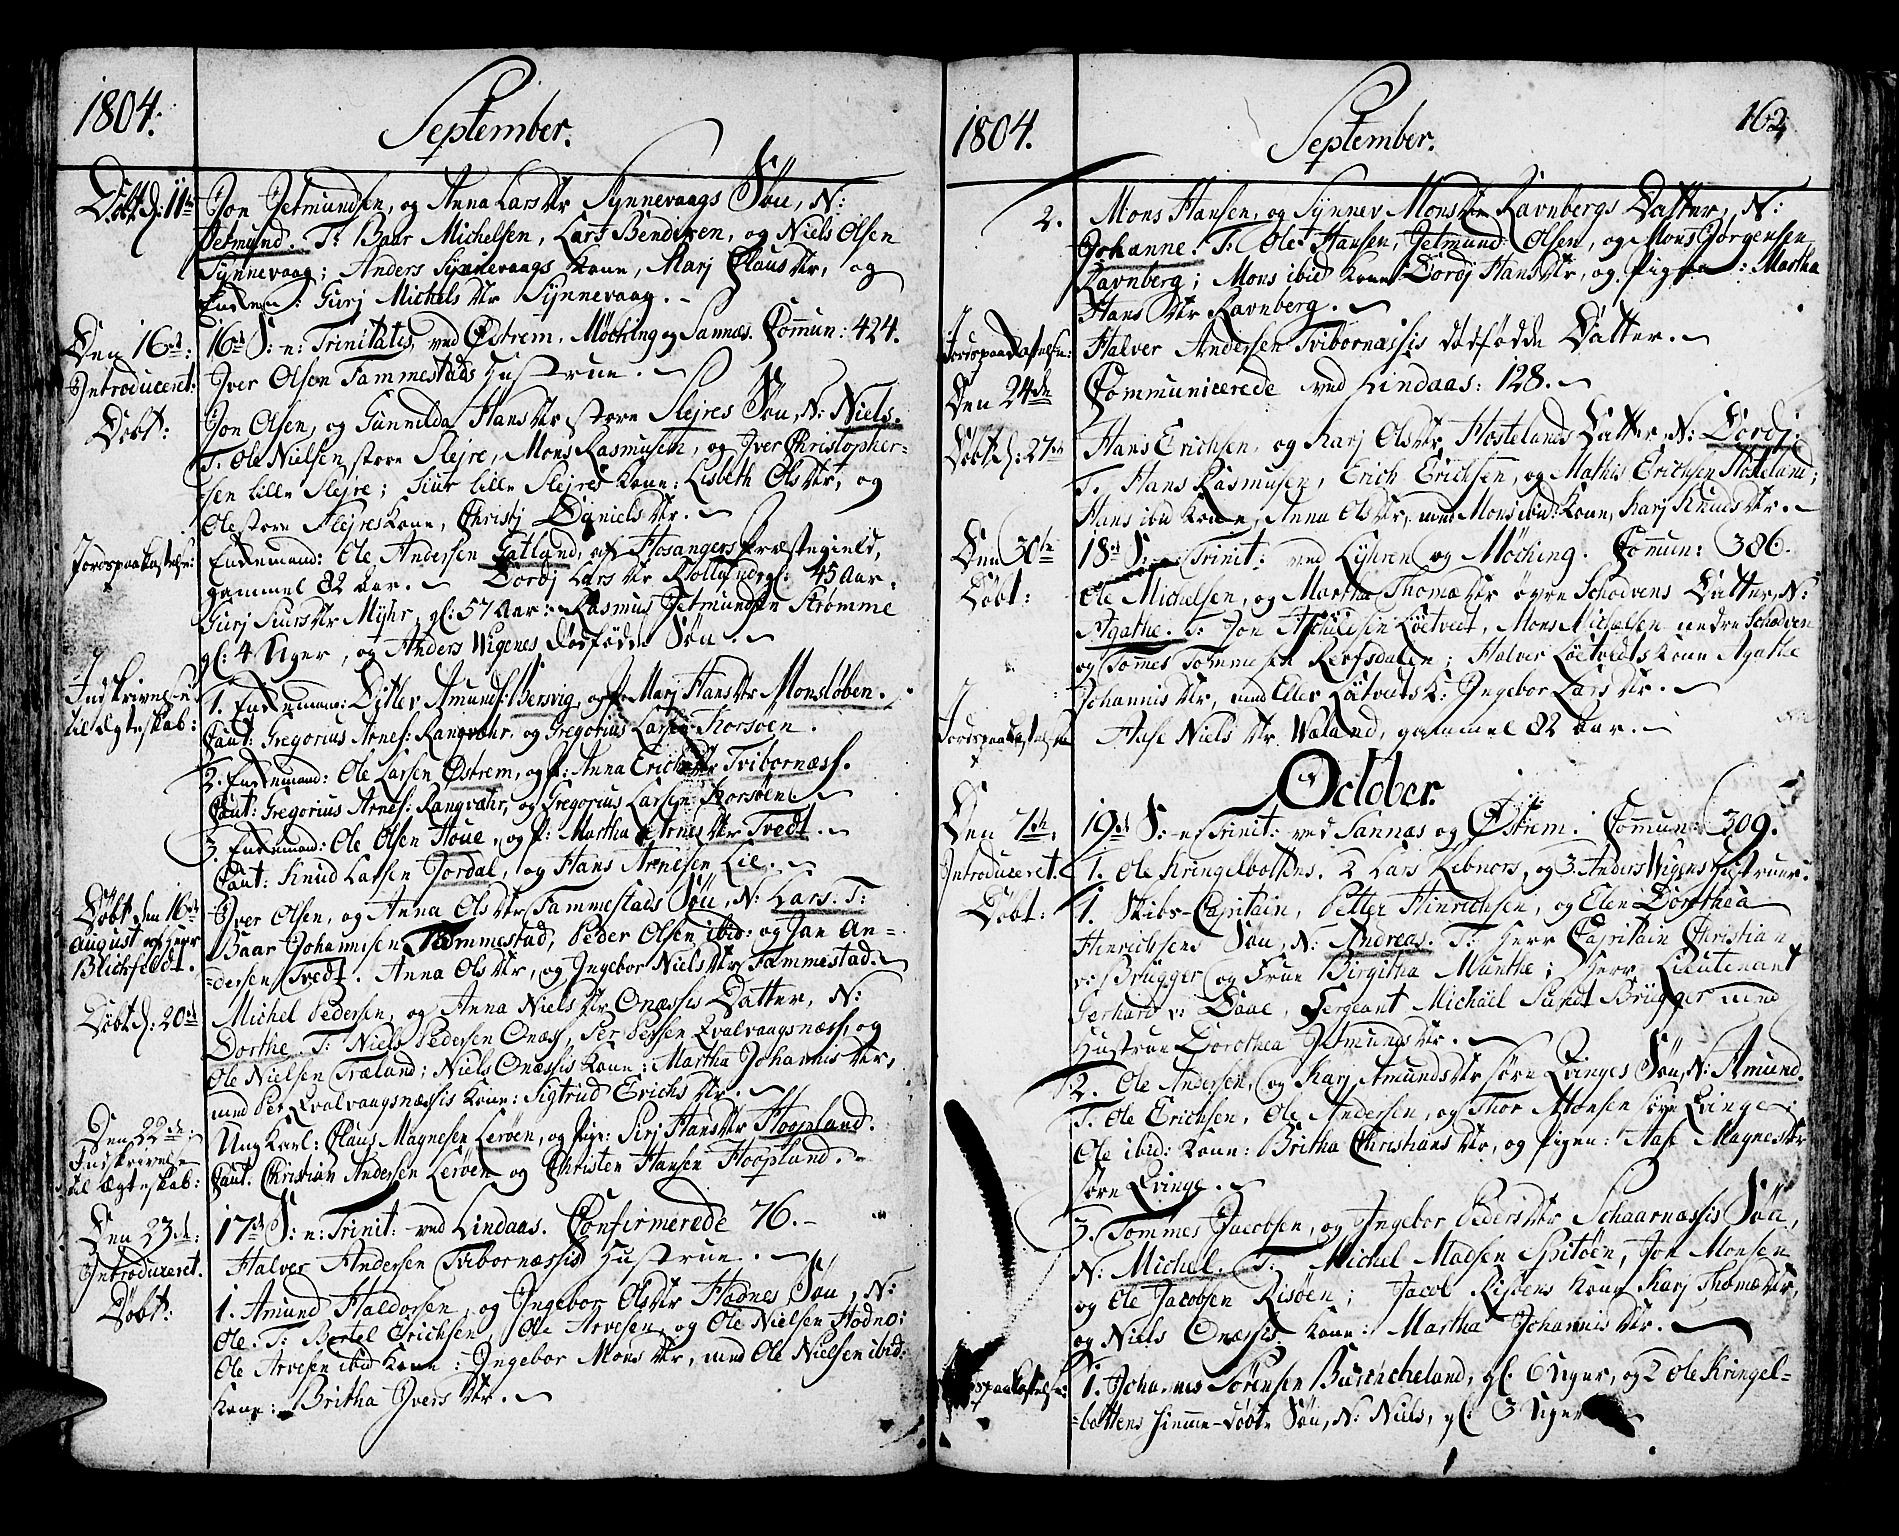 1804.
September.
Døbt d: 11te
Jon Jetmundsen, og Anna Lars Dtr Synnevaags Søn, N:
Jetmund. T: Baar Michelsen, Lars Bendixen, og Niels Olsen
Synnevaag; Anders Synnevaags Kone, Marj Claus Dtr, og
Gurj Michels Dtr Synnevaag.
Den 16de:
16de S: n: Trinitatis, ved Østrem, Møching og Sannæs. Commun: 424.
Introduceret:
Iver Olsen Fammestads Hustrue.
Døbt:
Jon Olsen, og Gunnilda Hans Dtr store Slejres Søn, N: Niels.
T. Ole Nielsen store Slejre, Mons Rasmusen, og Iver Christopher-
-sen lille Slejre; Siur lille Slejres Kone: Lisbeth Ols Dtr, og
Ole store Slejres Kone, Christj Daniels Dtr.
Jordspaakastelse:
Enkemand: Ole Andersen Gatland, af Hosangers Præstegield,
gammel 82 Aar. Dordj Lars Dtr gl: 45 Aar.
Gurj Siurs Dtr Myhr, gl: 57 Aar. Rasmus Jetmundsen Strømme
gl: 4 Uger, og Anders Wigenes dødfødde Søn.
Indskrivelse
til Ægteskab:
1. Enkemand: Ditlev Amunds: Hervig, og P: Marj Hans Dtr Monsløben.
Caut: Gregorius Arnes: Rangvahr, og Gregorius Larsen Korsøen.
2. Enkemand: Ole Larsen Østrem, og P: Anna Erichs Dtr Tvibornæss.
Caut: Gregorius Arnes: Rangvahr, og Gregorius Larsen Korsøen.
3. Enkemand: Ole Olsen Houe, og P: Martha Arnes Dtr Tvedt.
Caut: Knud Larsen Jordal, og Hans Arnesen Lie.
Døbt den 16de
August af Herr
Blichfeldt.
Iver Olsen, og Anna Ols Dtr Fammestads Søn, N: Lars. T:
Baar Johannisen Fammestad, Peder Olsen ibid: og Jan An-
-dersen Tvedt. Anna Ols Dtr, og Ingebor Niels Dtr Fammestad.
Døbt d: 20de
Michel Pedersen, og Anna Niels Dtr Onæssis Datter, N:
Dorthe. T: Niels Pedersen Onæss, Per Persen Kvalvaagsnæss, og
Ole Nielsen Træland; Niels Onæssis Kone: Martha Johannis Dtr,
med Per Kvalvaagsnæssis Kone: Sigtrud Erichs Dtr.
Den 22de:
Indskrivelse
til Ægteskab:
Ung Karl: Claus Magnesen Lerøen, og Pige: Sirj Hans Dtr Hoopland.
Caut. Christian Andersen Lerøen og Christen Hansen Hoopland.
Den 23de:
17de S: n: Trinit: ved Lindaas. Confirmerede 76.
Introduceret.
Halver Andersen Tvibornæssis Hustrue.
Døbt:
1. Amund Haldorsen, og Ingebor Ols Dtr Hodnes Søn, N:
Ole. T: Bertel Erichsen, Ole Arvesen, og Ole Nielsen Hodne:
Ole Arvesen ibid Kone: Ingebor Mons Dtr, med Ole Nielsen ibid:
Kone: Britha Ivers Dtr.
1804.
September.
162
2. Mons Hansen, og Synnev Mons Dtr Ravnbergs Datter, N:
Johanne. T: Ole Hansen, Jetmund Olsen, og Mons Jørgensen
Ravnberg; Mons ibid Kone Dordj Hans Dtr, og Pigen: Martha
Hans Dtr Ravnberg.
Jordspaakastelse:
Halver Andersen Tvibornæssis dødfødde Datter.
Den 24de
Communicerede ved Lindaas: 128.
Døbt d: 27de
Hans Erichsen, og Karj Ols Dtr, Hostelands Datter, N: Dordj.
T. Hans Rasmusen, Erich Erichsen, og Mathis Erichsen Hosteland;
Hans ibid Kone, Anna Ols Dtr, med Mons ibid: Kone, Karj Knuds Dtr.
Den 30te
18de S: n: Trinit: ved Lyhren og Møching. Commun: 386.
Døbt:
Ole Michelsen, og Martha Thomæ Dtr øvre Schodvens Datter, N:
Agathe. T: Jon Aschildsen Løtveit, Mons Michelsen nedre Schodven
og Tommes Tommesen Refsdalen; Halver Løtvedts Kone Agathe
Johannis Dtr, med Eller Løtveits K: Ingebor Lars Dtr.
Jordspaakastelse
Aase Niels Dtr Waland, gammel 82 Aar.
October.
Den 7de,
19de S: n: Trinit: ved Sannæs og Østrem. Commun: 309.
Introduceret.
1. Ole Kringelbottens. 2 Lars Rebnors, og 3. Anders Wigens Hustruer.
Døbt:
1. Skibs-Capitain, Petter Hinrichsen, og Elen Dorthea
Hinrichsens Søn, N: Andreas. T: Herr Capitain Christian
v: Brügger og Frue Birgitha Munthe; Herr Lieutenant
Gerhard v: Daae, Sergeant Michael Sundt Brügger med
Hustrue Dorothea Jetmunds Dtr.
2. Ole Andersen, og Karj Amunds Dtr søre Qvinges Søn, N: Amund.
T. Ole Erichsen, Ole Andersen, og Thor Monsen søre Qvinge;
Ole ibid: Kone: Britha Christians Dtr, og Pigen: Aase Magnes Dtr
søre Qvinge.
3. Tommes Jacobsen, og Ingebor Peders Dtr Schaarnæssis Søn,
N: Michel. T: Michel Madsen Spitøen, Jon Monsen
og Ole Jacobsen Risøen; Jacob Risøens Kone Karj Thomæ Dtr,
og Niels Onæssis Kone: Martha Johannis Dtr.
1. Johannes Sørensen gl. 6 Uger, og 2 Ole Kringel-
-bottens hiemme-døbte Søn, N: Niels, gl: 3 Uger